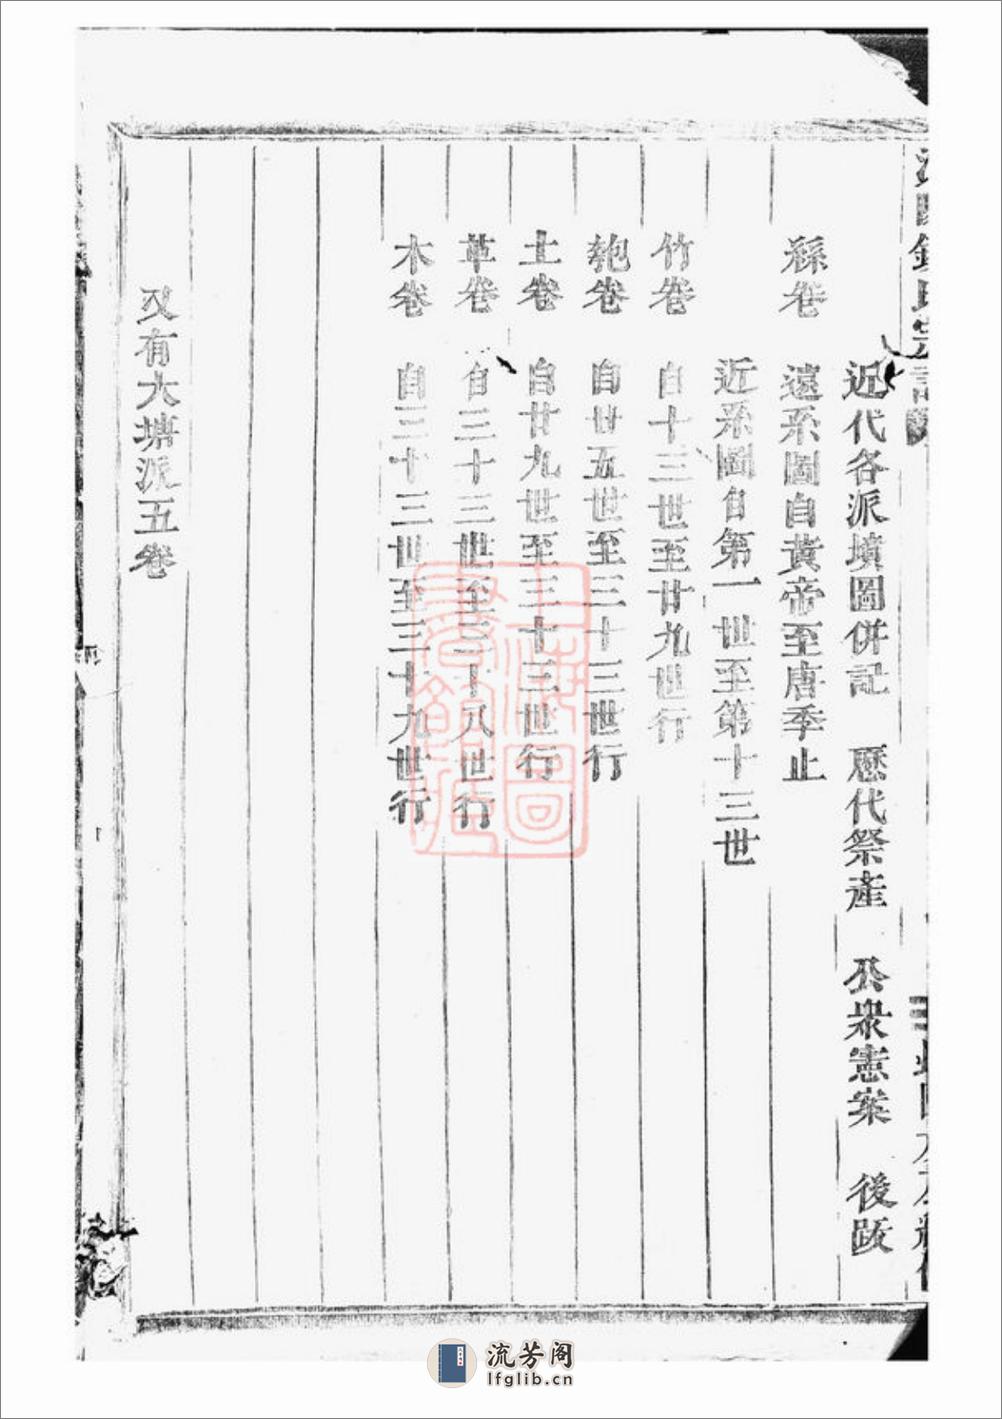 近代各派墳圖併記　歷代祭產　公衆憲案　後跋
絲卷　遠系圖自黃帝至唐季止
近系圖自第一世至第十三世
竹卷　自十三世至廿九世行
匏卷　自廿五世至三十三世行
土卷　自廿九世至三十三世行
革卷　自三十三世至三十八世行
木卷　自三十三世至三十九世行
又有大塘派五卷
上海圖書館藏
流芳阁
lfglib.cn